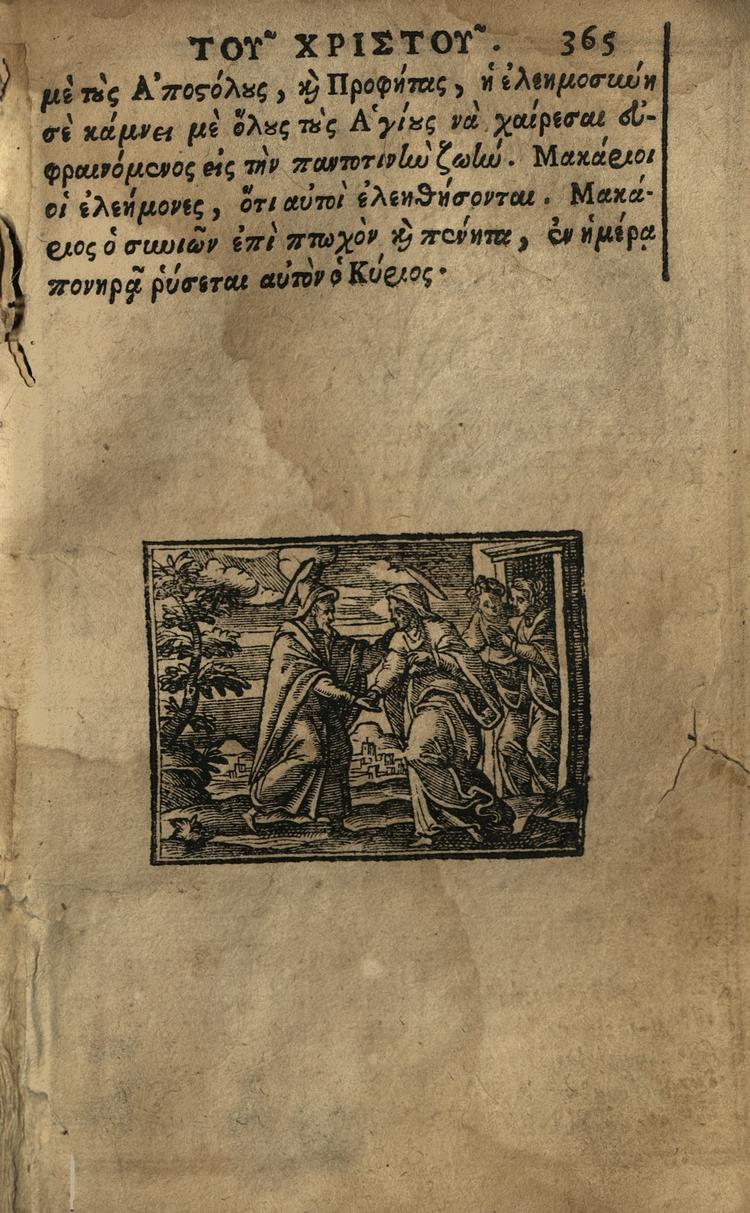 ΤΟΥ͂ ΧΡΙΣΤΟΥ͂. 365
μὲ τοὺς Ἀποστόλους, καὶ Προφήτας, ἡ ἐλεημοσύνη
σὲ κάμνει μὲ ὅλους τοὺς Ἁγίους νὰ χαίρεσαι εὐ-
φραινόμενος εἰς τὴν παντοτινὴν ζωήν. Μακάριοι
οἱ ἐλεήμονες, ὅτι αὐτοὶ ἐλεηθήσονται. Μακά-
ριος ὁ συνιῶν ἐπὶ πτωχὸν καὶ πένητα, ἐν ἡμέρᾳ
πονηρᾷ ῥύσεται αὐτὸν ὁ Κύριος.